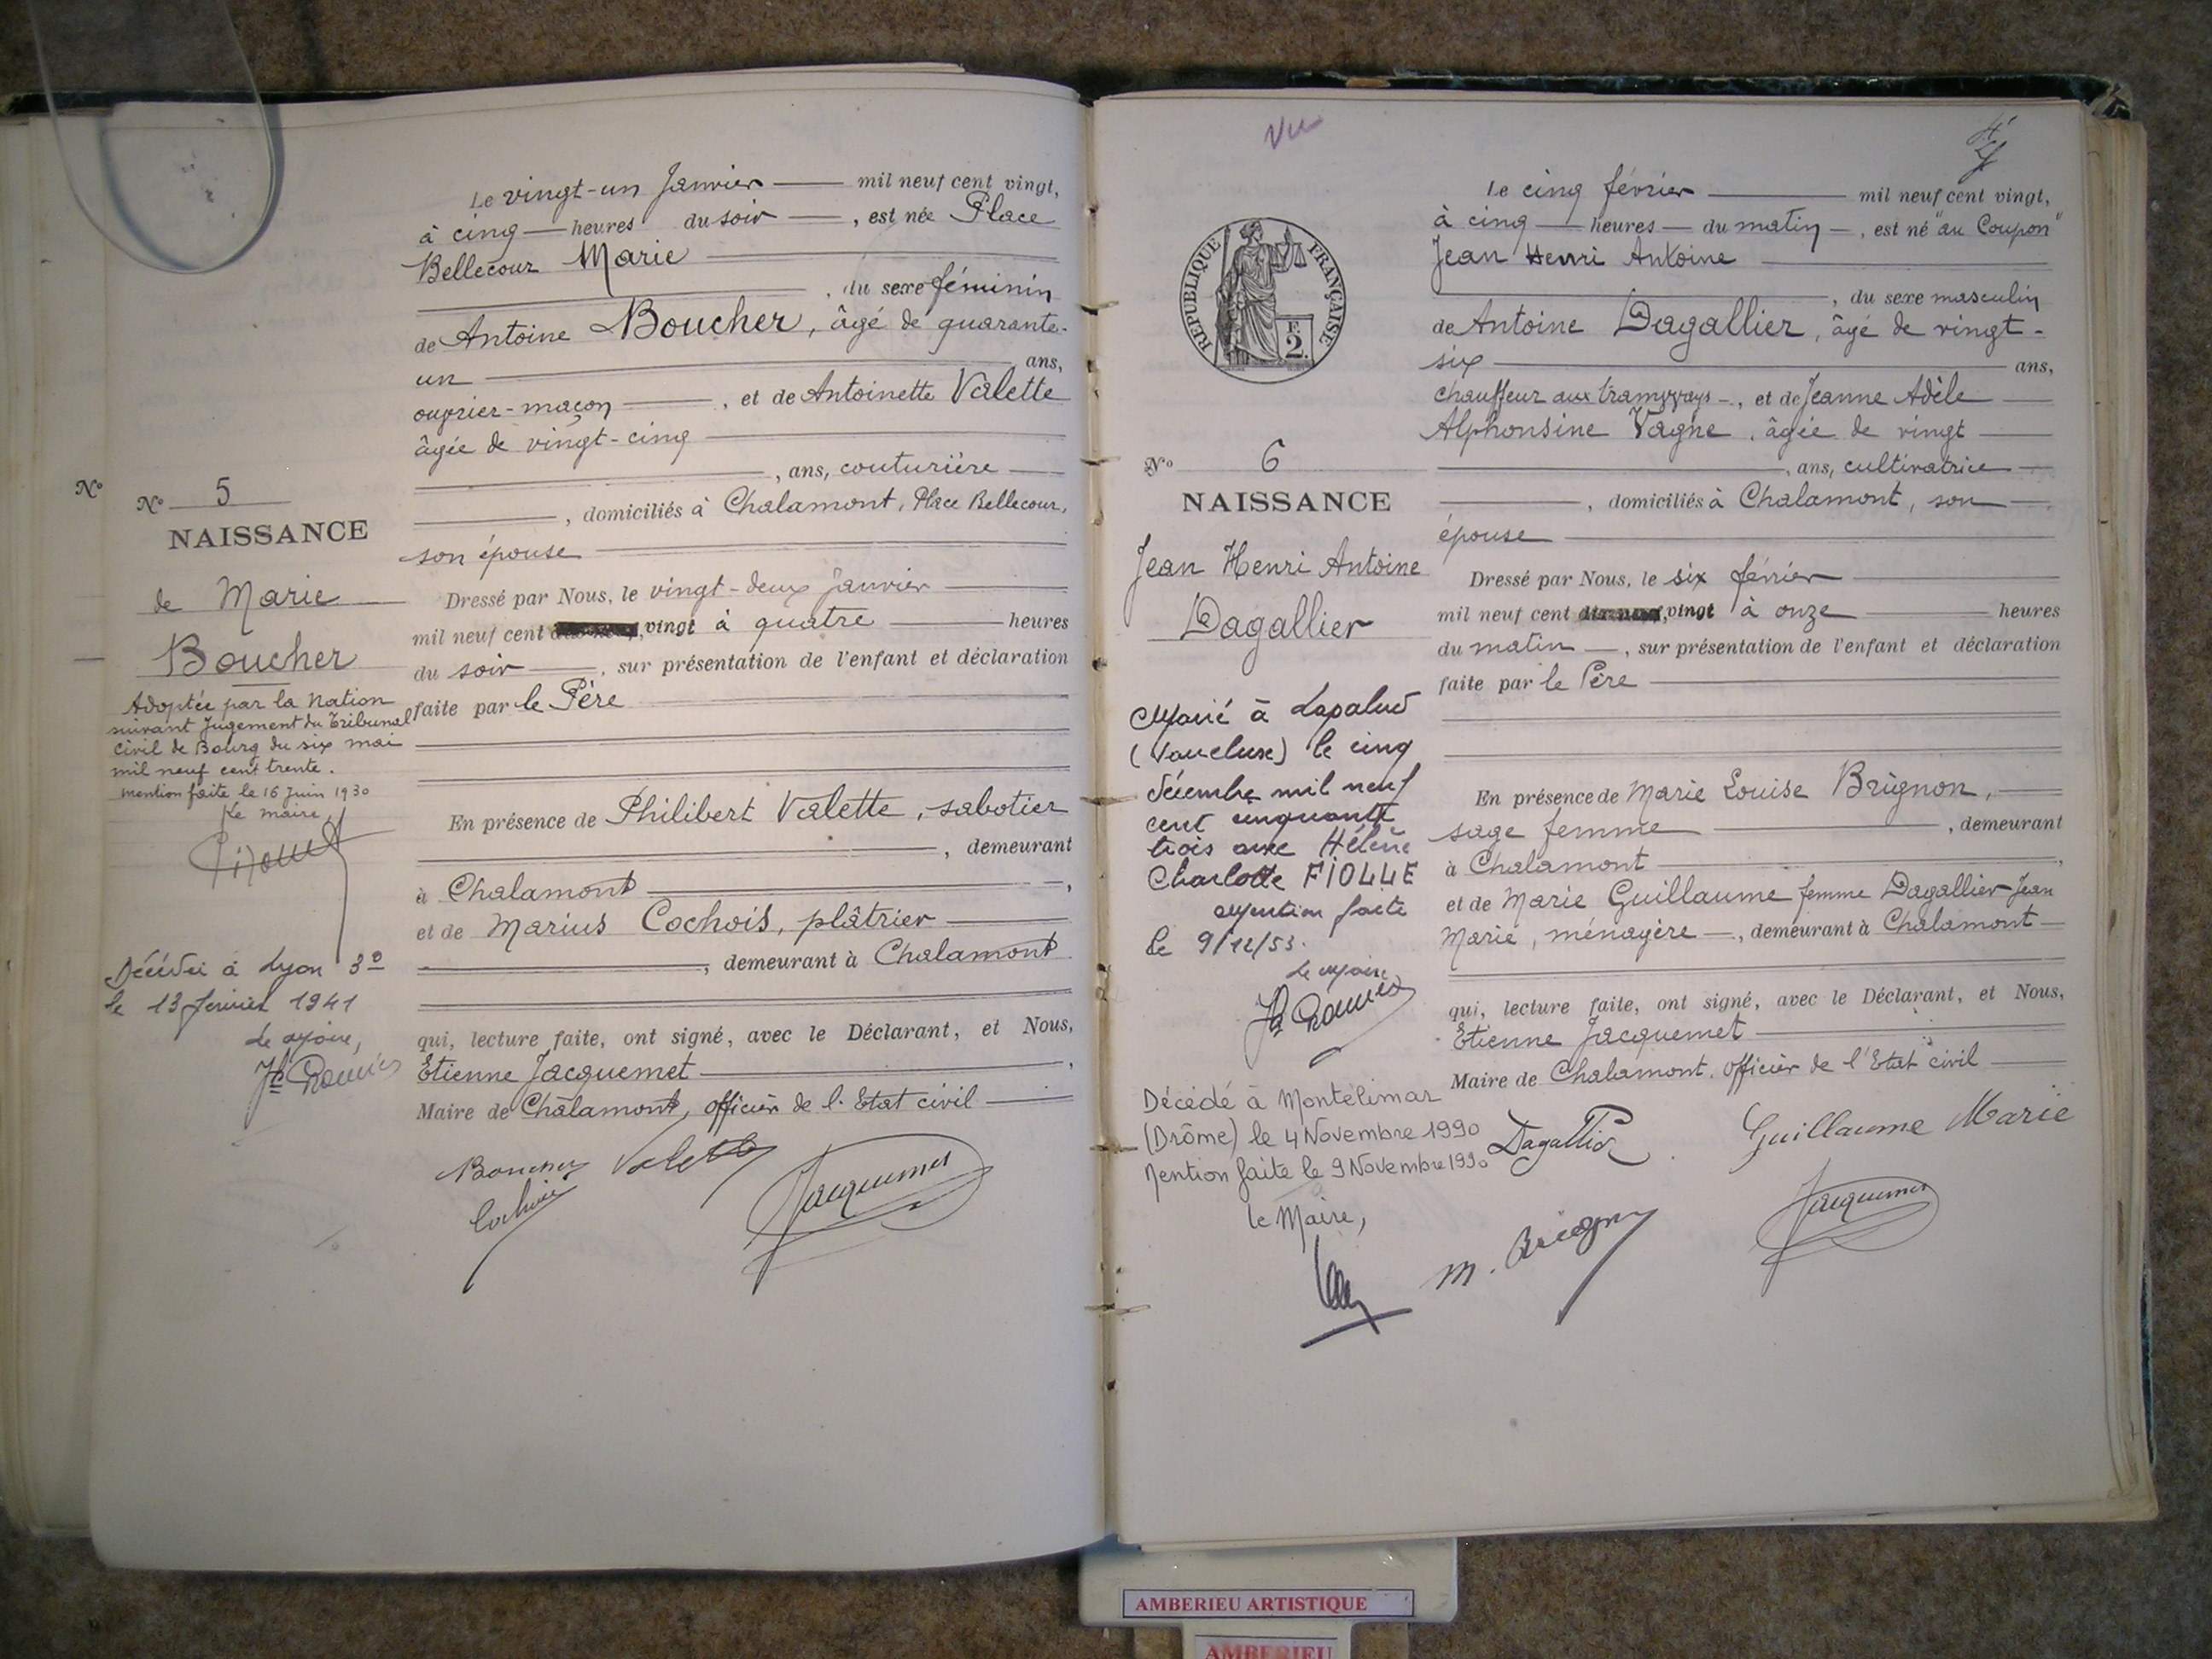 Le vingt-un Janvier mil neuf cent vingt,
à cinq heures du soir, est née Place
Bellecour Marie
, du sexe féminin
de Antoine Boucher, âgé de quarante-
un ans,
ouvrier-maçon, et de Antoinette Valette
âgée de vingt-cinq
, ans, couturière
, domiciliés à Chalamont, Place Bellecour,
son épouse
Dressé par Nous, le vingt-deux janvier
mil neuf cent vingt à quatre heures
du soir, sur présentation de l'enfant et déclaration
faite par le Père
En présence de Philibert Valette, sabotier
, demeurant
à Chalamont,
et de Marius Cochois, plâtrier
, demeurant à Chalamont
qui, lecture faite, ont signé, avec le Déclarant, et Nous,
Etienne Jacquemet,
Maire de Chalamont, officier de l'Etat civil
Boucher Valette
Cochois Jacquemet
Nº
Nº 5
NAISSANCE
de Marie
Boucher
Adoptée par la Nation
suivant Jugement du Tribunal
civil de Bourg du six mai
mil neuf cent trente.
Mention faite le 16 Juin 1930
Le maire,
Décédée à Lyon 3e
le 13 février 1941
Le Maire,
Vu
RÉPUBLIQUE FRANÇAISE
F.
2.
Nº 6
NAISSANCE
Jean Henri Antoine
Dagallier
Marié à Lapalud
(Vaucluse) le cinq
décembre mil neuf
cent cinquante
trois avec Hélène
Charlotte FIOLLE
Mention faite
le 9/12/53.
Le Maire
Décédé à Montélimar
(Drôme) le 4 Novembre 1990
Mention faite le 9 Novembre 1990
le Maire,
Le cinq février mil neuf cent vingt,
à cinq heures du matin, est né "au Coupon"
Jean Henri Antoine
, du sexe masculin
de Antoine Dagallier, âgé de vingt-
six ans,
chauffeur aux tramways, et de Jeanne Adèle
Alphonsine Vagne, âgée de vingt
, ans, cultivatrice
, domiciliés à Chalamont, son
épouse
Dressé par Nous, le six février
mil neuf cent vingt à onze heures
du matin, sur présentation de l'enfant et déclaration
faite par le Père
En présence de Marie Louise Brignon,
sage femme, demeurant
à Chalamont,
et de Marie Guillaume femme Dagallier Jean
Marie, ménagère, demeurant à Chalamont
qui, lecture faite, ont signé, avec le Déclarant, et Nous,
Etienne Jacquemet
Maire de Chalamont, officier de l'Etat civil
Dagallier Guillaume Marie
M. Brignon Jacquemet
AMBERIEU ARTISTIQUE
AMBERIEU